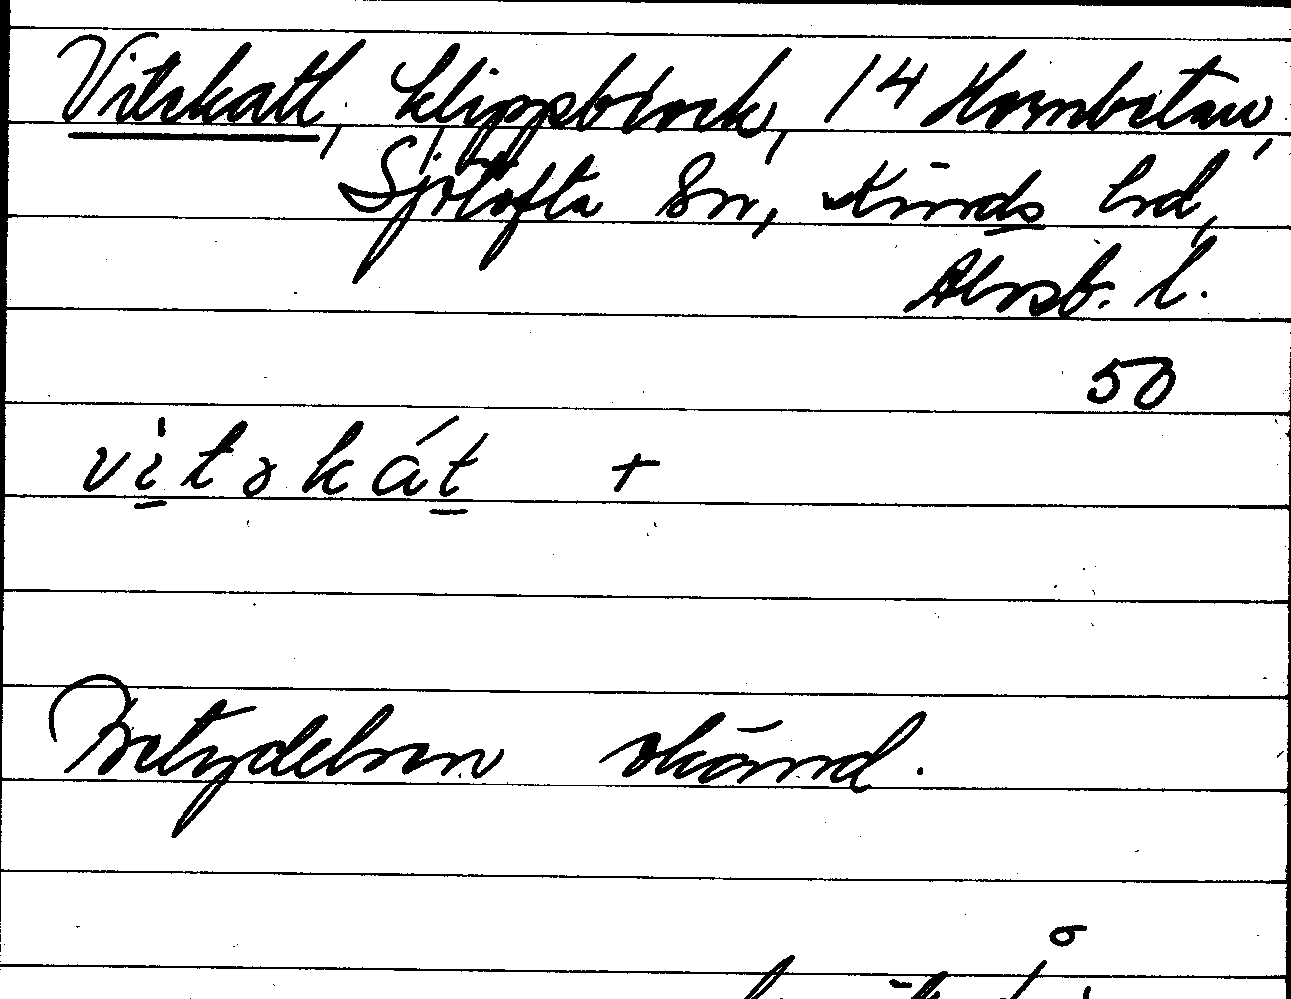 Vitekatt, klippblock, 14 Hornbetaw,
Sjötofta Sn, Kinds hd,
Älvsb. l.
50
vitəkát +
Betydelsen okänd.